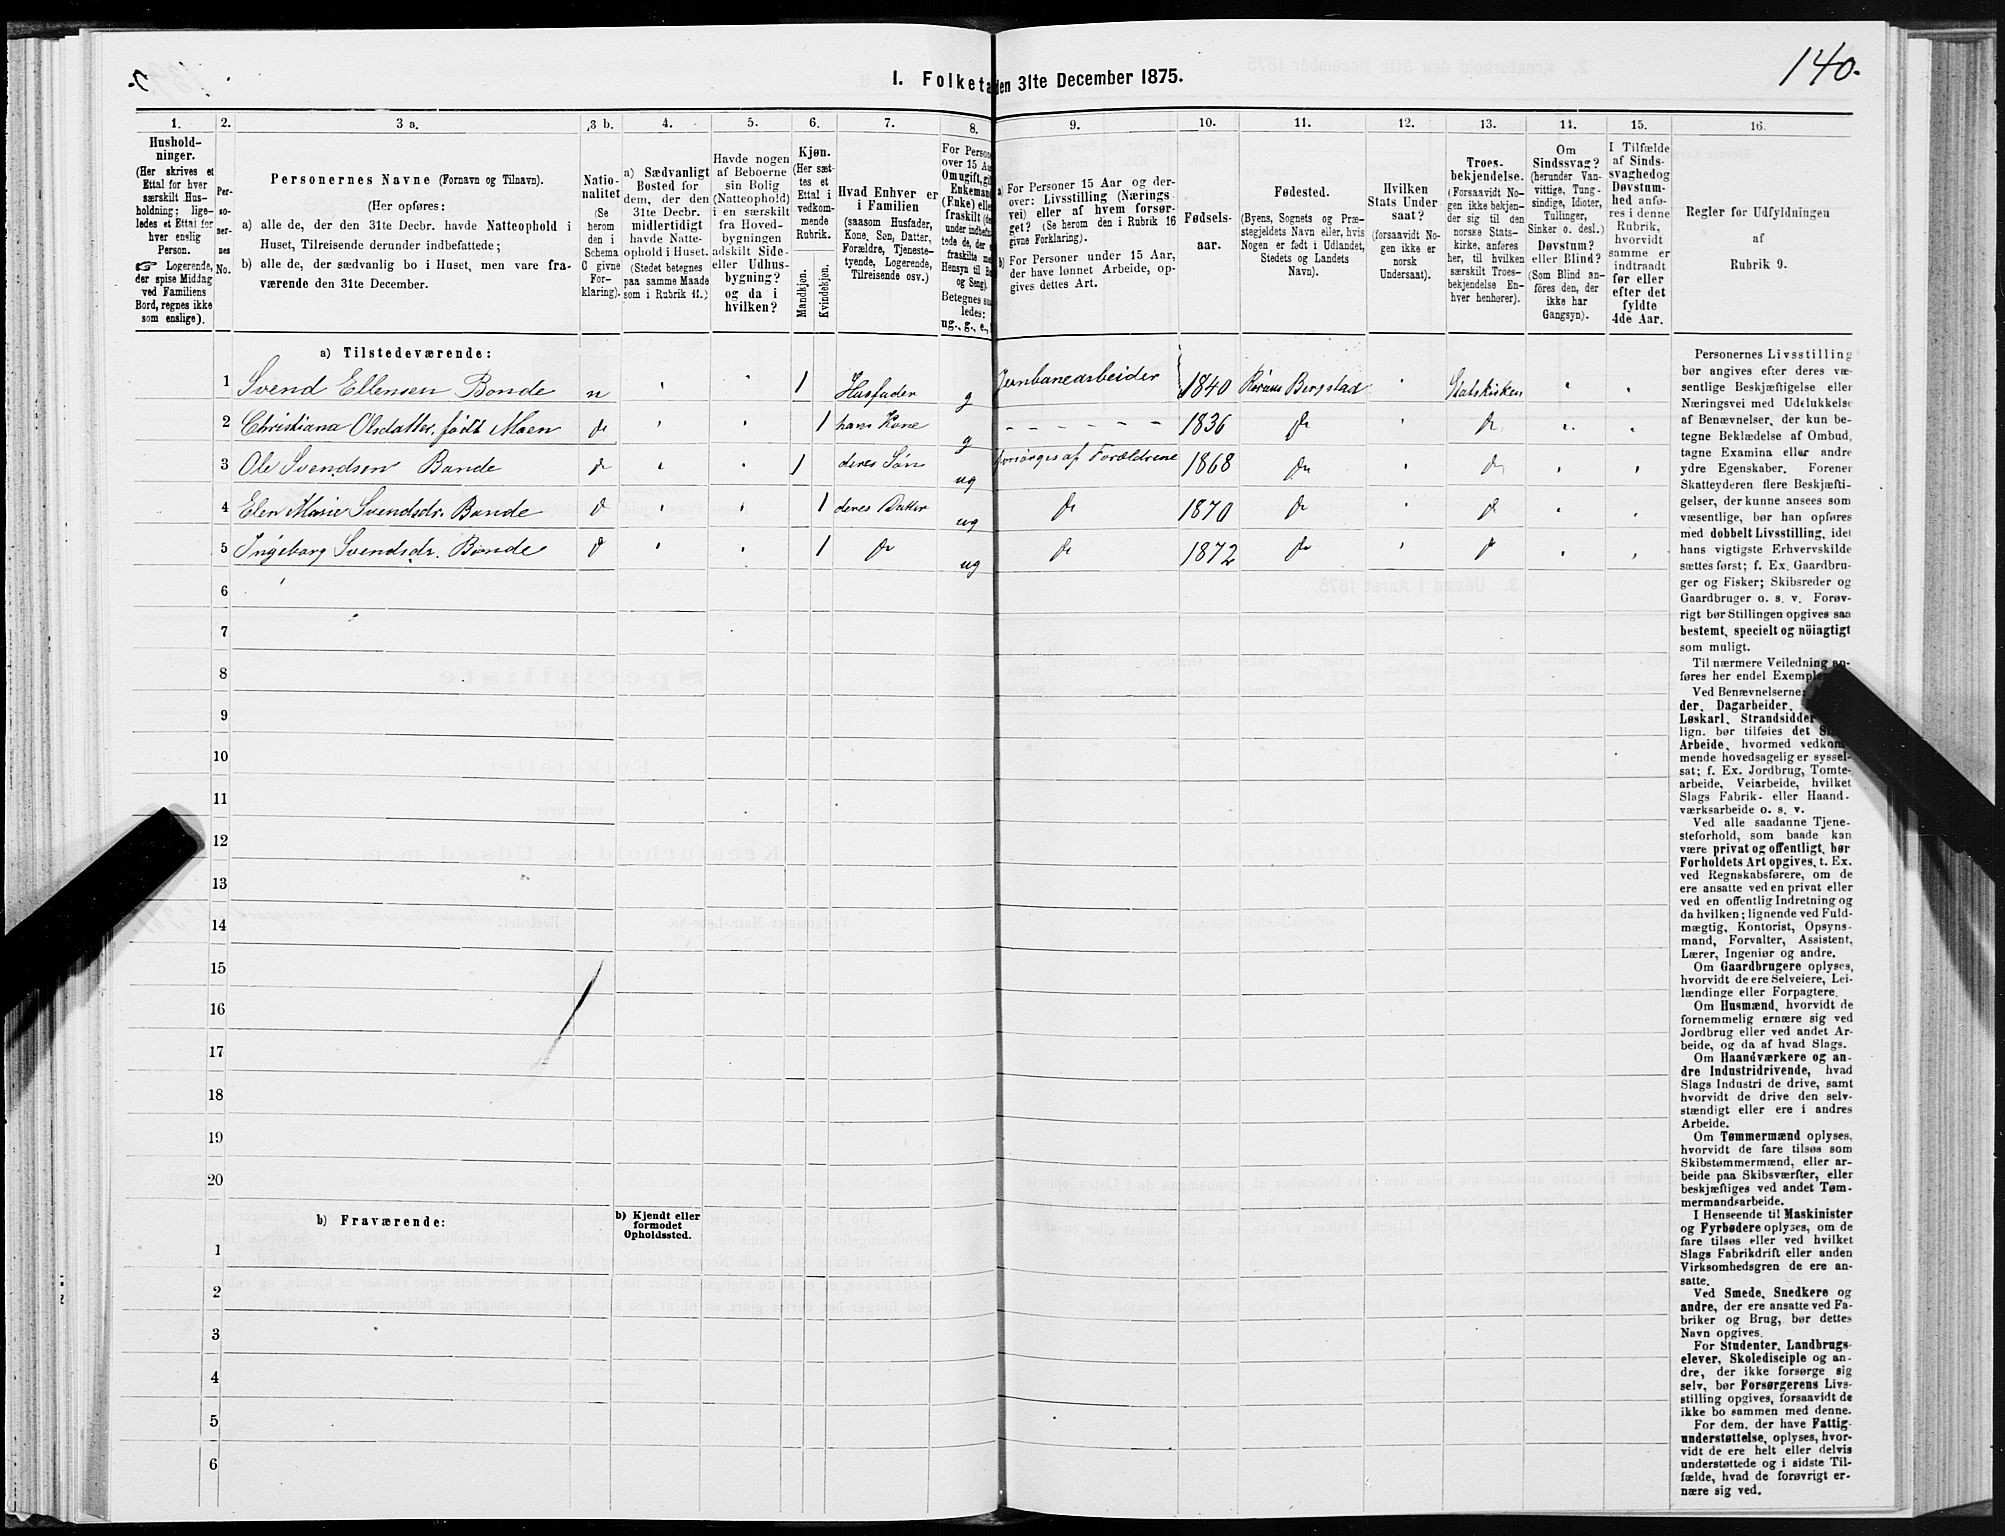 140.
1. Folketa
den 31te December 1875.
1.
2.
3 a.
3 b.
4.
5.
6.
7.
8.
9.
10.
11.
12.
13.
14.
15.
16.
Hushold-
ninger.
(Her skrives et
Ettal for hver
særskilt Hus-
holdning; lige-
ledes et Ettal for
hver enslig
Person.
☞ Logerende,
der spise Middag
ved Familiens
Bord, regnes ikke
som enslige).
Per-
so-
ner-
nes
No.
Personernes Navne (Fornavn og Tilnavn).
(Her opføres:
a) alle de, der den 31te Decbr. havde Natteophold i
Huset, Tilreisende derunder indbefattede;
b) alle de, der sædvanlig bo i Huset, men vare fra-
værende den 31te December.
Natio-
nalitet
(Se
herom
den i
Schema
C givne
For-
klaring).
a) Sædvanligt
Bosted for
dem, der den
31te Decbr.
midlertidigt
havde Natte-
ophold i Huset.
(Stedet betegnes
paa samme Maade
som i Rubrik 11.)
Havde nogen
af Beboerne
sin Bolig
(Natteophold)
i en særskilt
fra Hoved-
bygningen
adskilt Side-
eller Udhus-
bygning?
og da i
hvilken?
Kjøn.
(Her sæt-
tes et
Ettal i
vedkom-
mende
Rubrik.
Mandkjøn.
Kvindekjøn.
Hvad Enhver er
i Familien
(saasom Husfader,
Kone, Søn, Datter,
Forældre, Tjeneste-
tyende, Logerende,
Tilreisende osv.)
For Person
over 15 Aa
Om ugift, gif
Enkemand
(Enke) elle
fraskilt (de
under indbefat-
tede de, der e
fraskilte me
Hensyn til Bo
og Seng).
Betegnes saa
ledes:
ug., g., e.,
a) For Personer 15 Aar og der-
over: Livsstilling (Nærings
vei) eller af hvem forsør-
get? (Se herom den i Rubrik 16
givne Forklaring).
b) For Personer under 15 Aar,
der have lønnet Arbeide, op-
gives dettes Art.
Fødsels-
aar.
Fødested.
(Byens, Sognets og Præ-
stegjeldets Navn eller, hvis
Nogen er født i Udlandet,
Stedets og Landets
Navn).
Hvilken
Stats Under
saat?
(forsaavidt No-
gen ikke er
norsk
Undersaat).
Troes-
bekjendelse.
(Forsaavidt No-
gen ikke bekjen-
der sig til den
norske Stats-
kirke, anføres
her, til hvilken
særskilt Troes-
bekjendelse En-
hver henhører).
Om
Sindssvag?
(herunder Van-
vittige, Tung-
sindige, Idioter,
Tullinger,
Sinker o. desl.)
Døvstum?
eller Blind?
(Som Blind an-
føres den, der
ikke har
Gangsyn).
I Tilfælde
af Sinds-
svaghed og
Døvstum-
hed anfø-
res i denne
Rubrik,
hvorvidt
samme er
indtraadt
før eller
efter det
fyldte
4de Aar.
Regler for Udfyldningen
af
Rubrik 9.
a) Tilstedeværende:
1 Svend Ellensen Bonde n 1 Husfader g Jernbanearbeider 1840 Røraas Bergstad Statskirken
2 Christiana Olsdatter, født Moen do 1 hans Kone g - - - - - - 1836 do do
3 Ole Svendsen Bonde do 1 deres Søn ug forsørges af Forældrene 1868 do do
4 Elen Marie Svendsdr. Bonde do 1 deres Datter ug do 1870 do do
5 Ingeborg Svendsdr. Bonde do 1 do ug do 1872 do do
6
7
8
9
10
11
12
13
14
15
16
17
18
19
20
b) Fraværende:
b) Kjendt eller
formodet
Opholdssted.
1
2
3
4
5
6
Personernes Livsstilling
bør angives efter deres væ-
sentlige Beskjæftigelse eller
Næringsvei med Udelukkelse
af Benævnelser, der kun be-
tegne Beklædelse af Ombud,
tagne Examina eller andre
ydre Egenskaber. Forener
Skatteyderen flere Beskjæfti-
gelser, der kunne ansees som
væsentlige, bør han opføres
med dobbelt Livsstilling, idet
hans vigtigste Erhvervskilde
sættes først; f. Ex. Gaardbru-
ger og Fisker; Skibsreder og
Gaardbruger o. s. v. Forøv-
rigt bør Stillingen opgives saa
bestemt, specielt og nöiagtigt
som muligt.
Til nærmere Veiledning an-
føres her endel Exempl
Ved Benævnelserne:
der, Dagarbeider,
Løskarl, Strandsidder
lign. bør tilføies det S
Arbeide, hvormed vedkom-
mende hovedsagelig er syssel-
sat; f. Ex. Jordbrug, Tomte-
arbeide, Veiarbeide, hvilket
Slags Fabrik- eller Haand-
værksarbeide o. s. v.
Ved alle saadanne Tjene-
steforhold, som baade kan
være privat og offentligt, bør
Forholdets Art opgives, t. Ex.
ved Regnskabsførere, om de
ere ansatte ved en privat eller
ved en offentlig Indretning og
da hvilken; lignende ved Fuld-
mægtig, Kontorist, Opsyns-
mand, Forvalter, Assistent,
Lærer, Ingeniør og andre.
Om Gaardbrugere oplyses,
hvorvidt de ere Selveiere, Lei-
lændinge eller Forpagtere.
Om Husmænd, hvorvidt de
fornemmelig ernære sig ved
Jordbrug eller ved andet Ar-
beide, og da af hvad Slags.
Om Haandværkere og an-
dre Industridrivende, hvad
Slags Industri de drive, samt
hvorvidt de drive den selv-
stændigt eller ere i andres
Arbeide.
Om Tømmermænd oplyses,
hvorvidt de fare tilsøs som
Skibstømmermænd, eller ar-
beide paa Skibsværfter, eller
beskjæftiges ved andet Tøm-
mermandsarbeide.
I Henseende til Maskinister
og Fyrbødere oplyses, om de
fare tilsøs eller ved hvilket
Slags Fabrikdrift eller anden
Virksomhedsgren de ere an-
satte.
Ved Smede, Snedkere og
andre, der ere ansatte ved Fa-
briker og Brug, bør dettes
Navn opgives.
For Studenter, Landbrugs-
elever, Skoledisciple og an-
dre, der ikke forsørge sig
selv, bør Forsørgerens Livs-
stilling opgives, forsaavidt de
ikke bo sammen med denne.
For dem, der have Fattig-
understøttelse, oplyses, hvor-
vidt de ere helt eller delvis
understøttede og i sidste Til-
fælde, hvad de forøvrigt er-
nære sig ved.